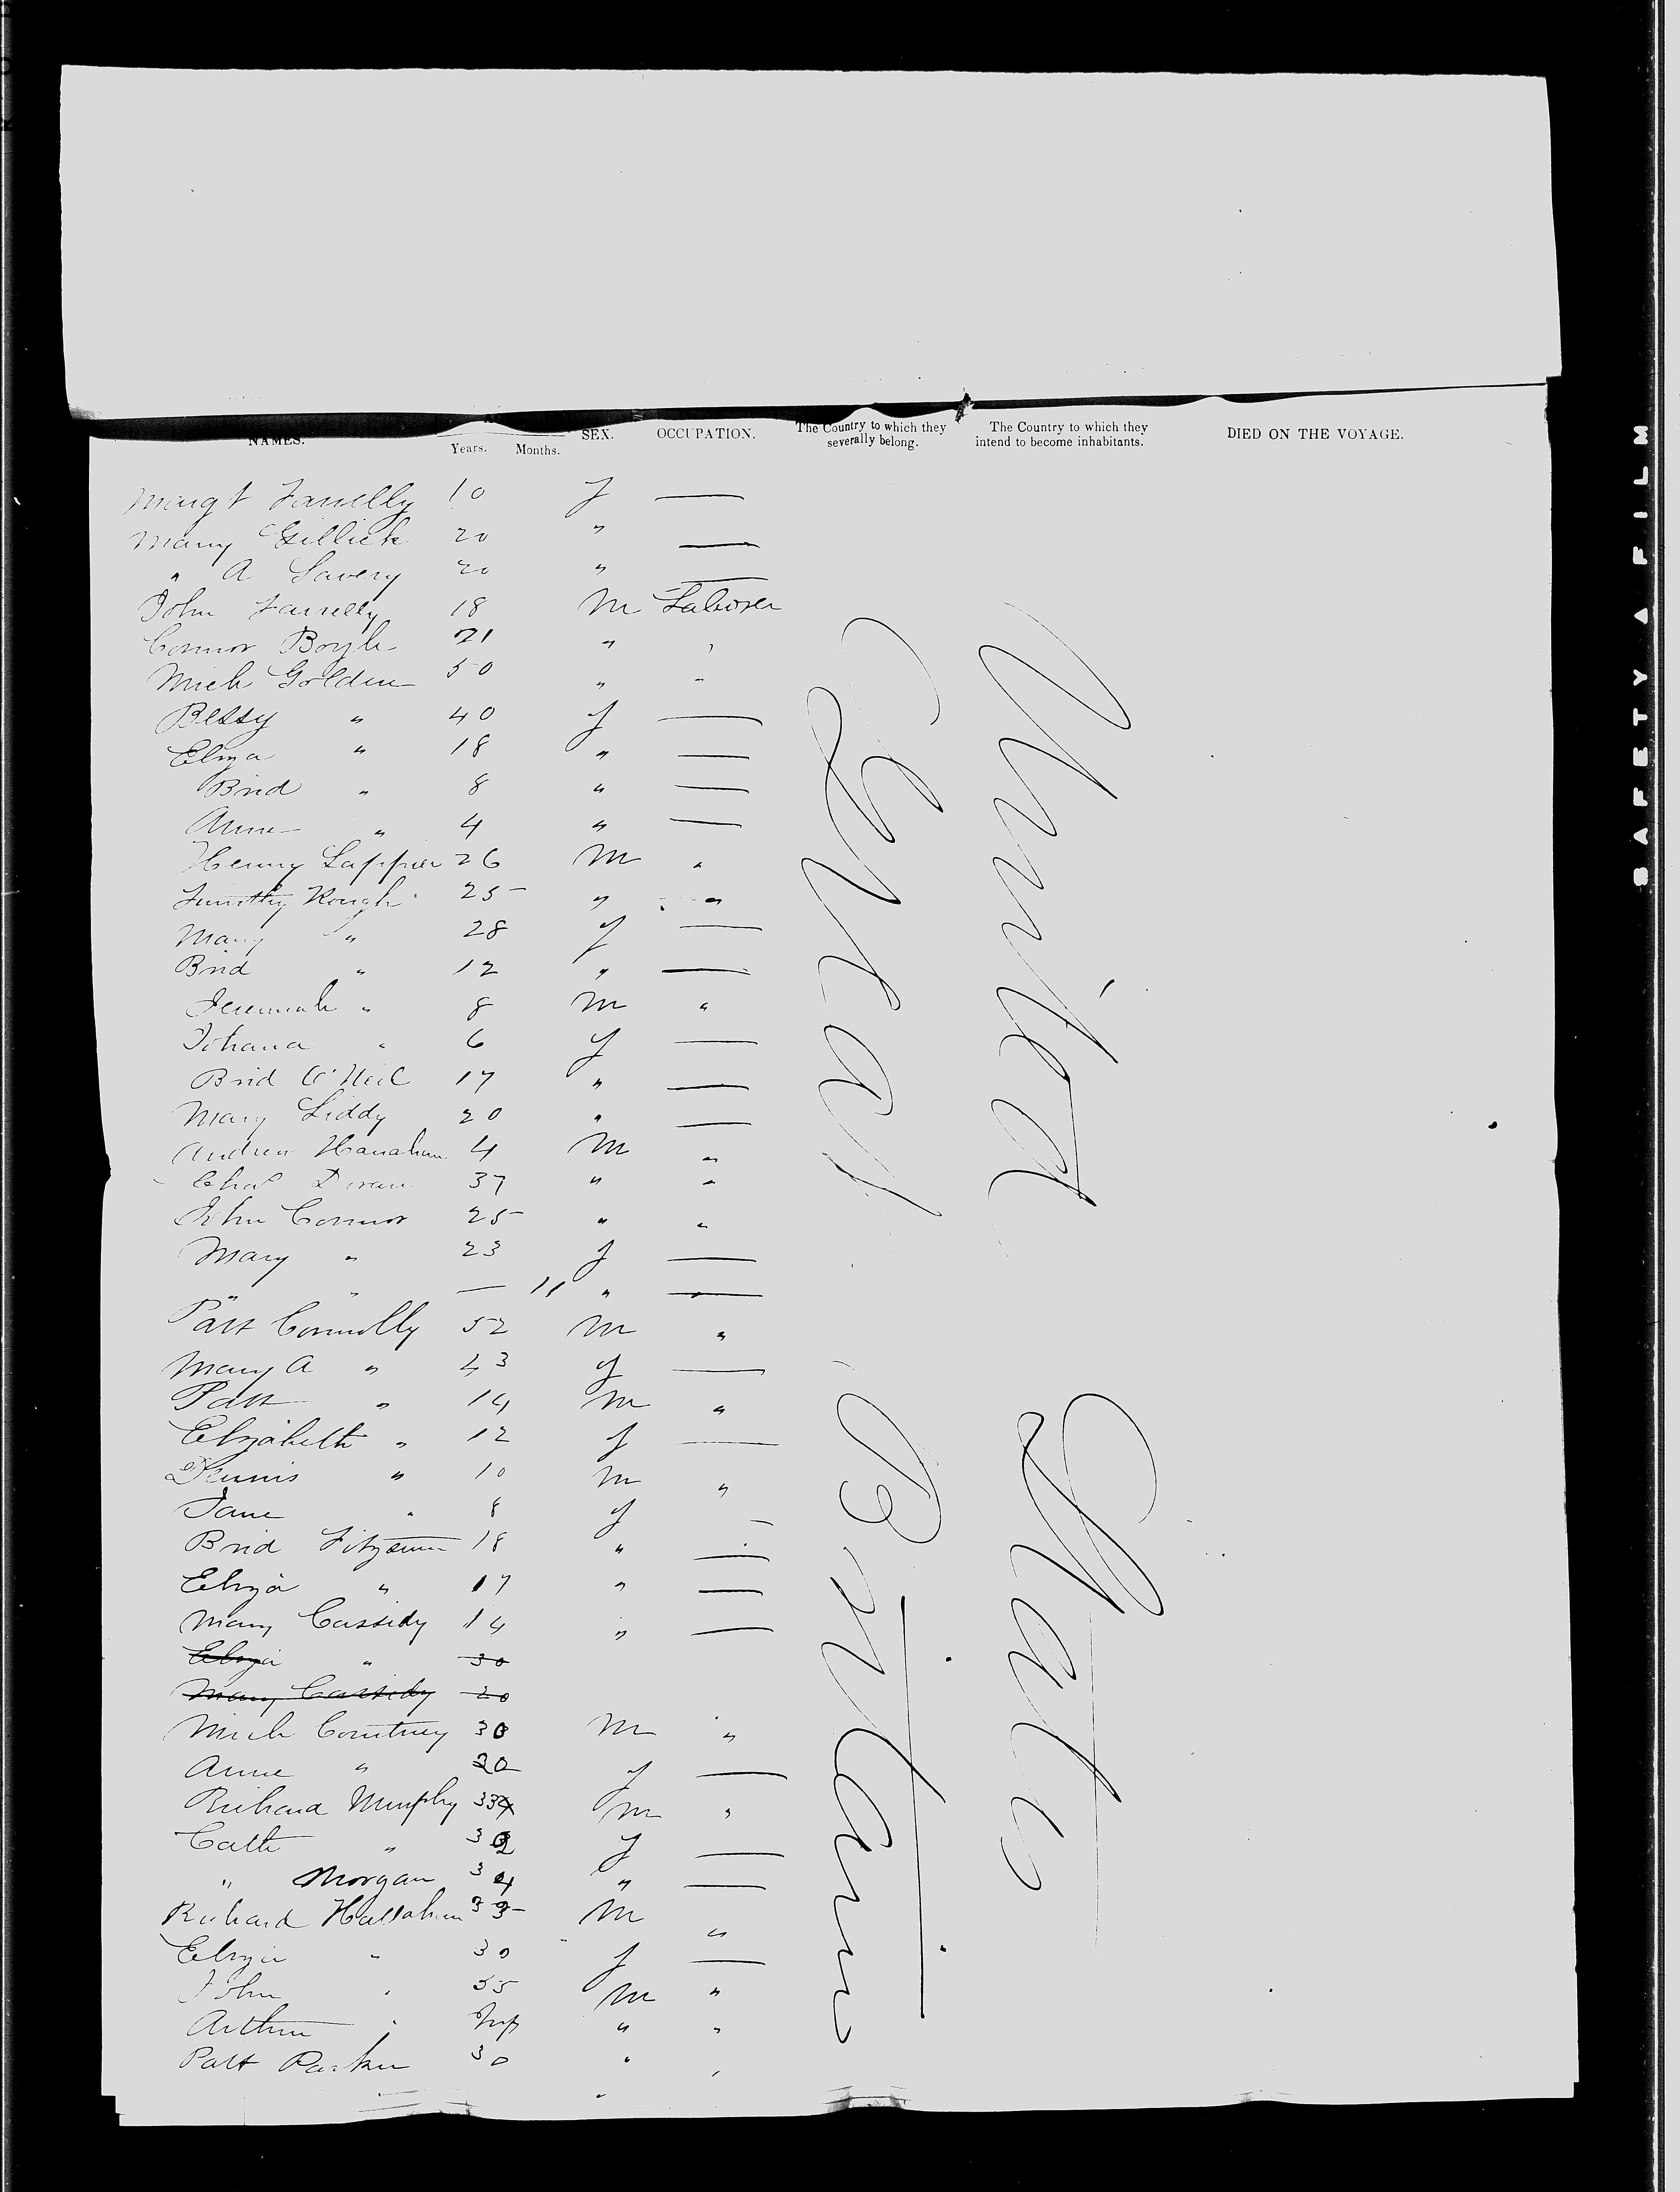 NAMES. Years. Months. SEX. OCCUPATION. The Country to which they severally belong. The Country to which they intend to become inhabitants. DIED ON THE VOYAGE.
Margt Farrelly 10 f —
Mary Gillick 20 " —
" A Lavery 20 " —
John Farrelly 18 M Laborer
Connor Boyle 21 " "
Mich Golden 50 " "
Betsy " 40 f —
Eliza " 18 " —
Brid " 8 " —
Anne " 4 " —
Henry Lappin 26 M "
Timothy Keough 25 " "
Mary " 28 f —
Brid " 12 " —
Jeremiah " 8 M "
Johana " 6 f —
Brid O'Neil 17 " —
Mary Liddy 20 " —
Andrew Hanahan 4 M "
Chas Doran 37 " "
John Connor 25 " "
Mary " 23 f —
" " — 11 " —
Patt Connolly 52 M "
Mary A " 43 f —
Patt " 14 M "
Elizabeth " 12 f —
Dennis " 10 M "
Jane " 8 f —
Brid Fitzsimm 18 " —
Eliza " 17 " —
Mary Cassidy 14 " —
Eliza " 30
Mary Cassidy 20
Mich Courtney 30 M "
Anne " 30 f —
Richard Murphy 33 M "
Cath " 32 f —
" Morgan 34 " —
Richard Hallahan 33 M "
Eliza " 30 f —
John " 35 M "
Arthur " Inf " "
Patt Parker 30 " "
Great Britain
United States
SAFETY FILM